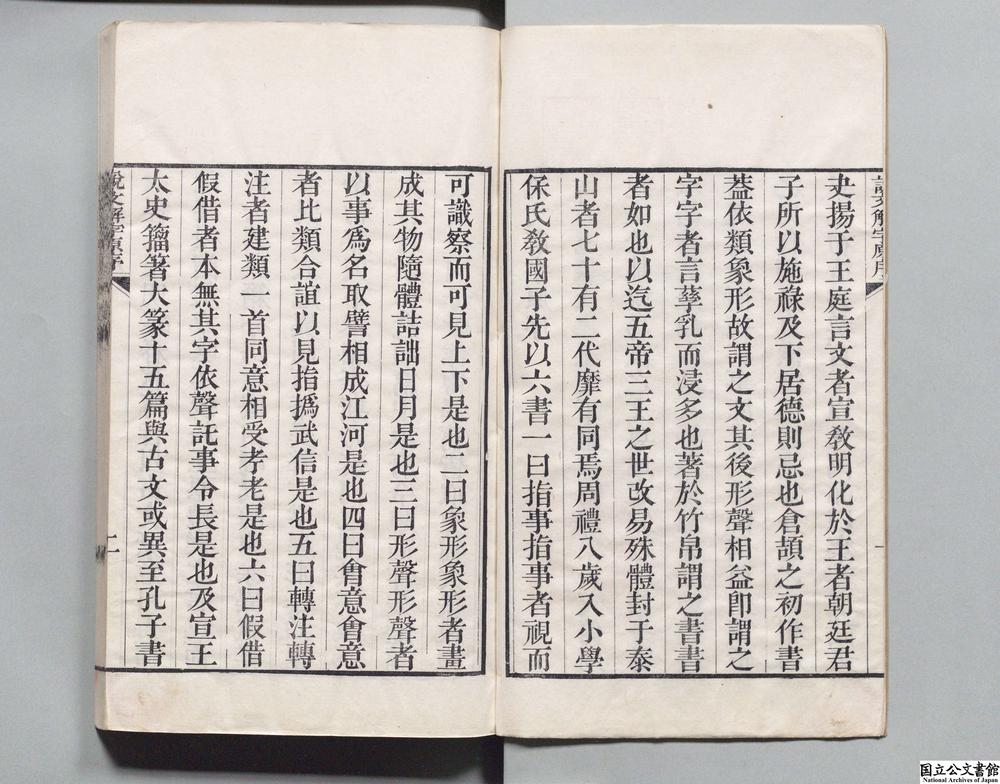 夬揚于王庭言文者宣敎明化於王者朝廷君
子所以施祿及下居德則忌也倉頡之初作書
葢依類象形故謂之文其後形聲相益卽謂之
字字者言孳乳而浸多也著於竹帛謂之書書
者如也以迄五帝三王之世改易殊體封于泰
山者七十有二代靡有同焉周禮八歲入小學
保氏敎國子先以六書一曰指事指事者視而
可識察而可見上下是也二曰象形象形者畫
成其物隨體詰詘日月是也三曰形聲形聲者
以事爲名取譬相成江河是也四曰會意會意
者比類合誼以見指撝武信是也五曰轉注轉
注者建類一首同意相受考老是也六曰假借
假借者本無其字依聲託事令長是也及宣王
太史籒著大篆十五篇與古文或異至孔子書
說文解字眞序
二
国立公文書館
National Archives of Japan